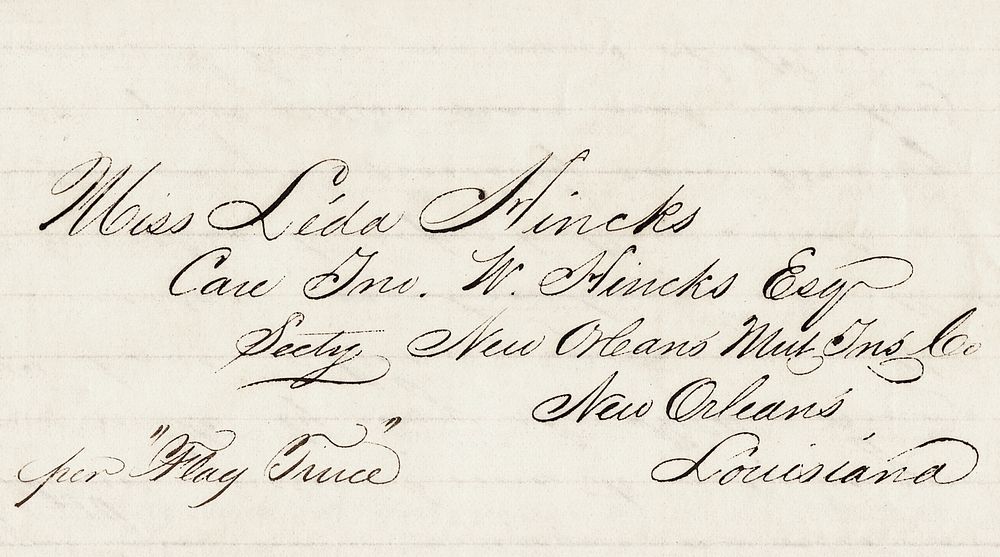 Miss Léda Hincks
Care Jno. W. Hincks Esqr
Secty New Orleans Mut Ins Co
New Orleans
Louisiana
per "Flag Truce"